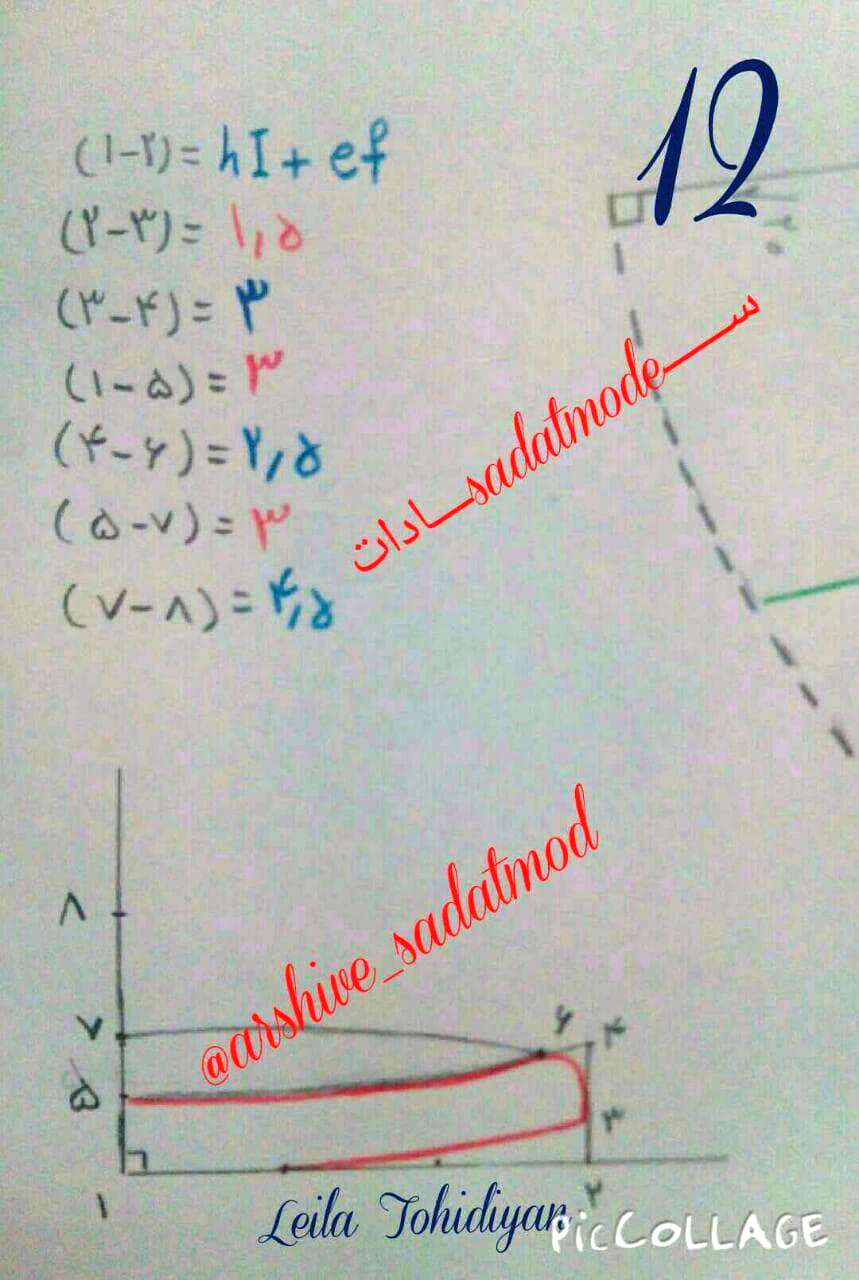 12
(۱-۲)= hI + ef
(۲-۳)= ۱,۵
(۳-۴)= ۳
(۱-۵)= ۳
(۴-۶)= ۲,۵
(۵-۷)= ۳
(۷-۸)= ۴,۵
ســـsadatmodeـــادات
@arshive_sadatmod
۸
۷
۶
۴
۵
۳
۱
۲
Leila Tohidiyan
PicCOLLAGE